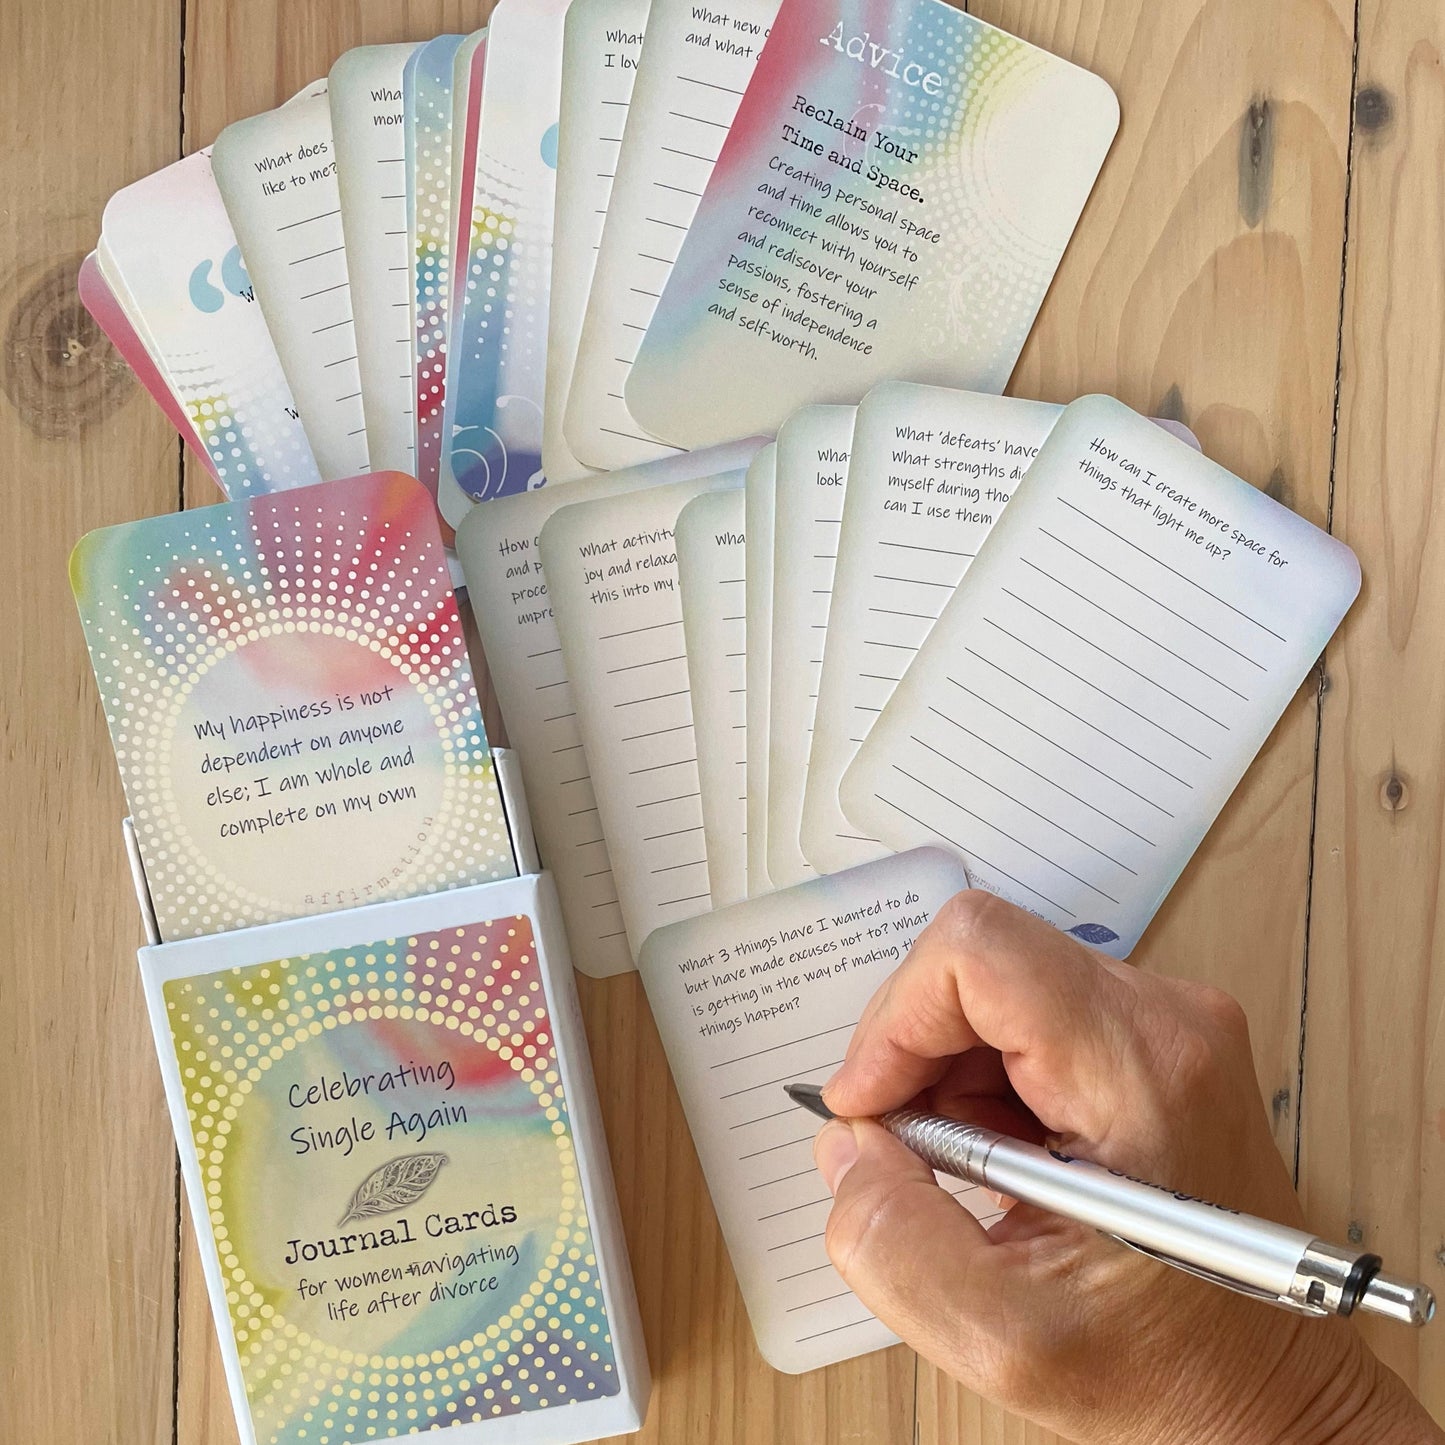 What new
and what
What
I lov
Wha
mom
What does
like to me?
Advice
Reclaim Your
Time and Space.
Creating personal space
and time allows you to
reconnect with yourself
and rediscover your
passions, fostering a
sense of independence
and self-worth.
How can I create more space for
things that light me up?
What 'defeats' have
What strengths di
myself during tho
can I use them
What
look
Wha
What activit
joy and relaxa
this into my
How
and p
proce
unpre
My happiness is not
dependent on anyone
else; I am whole and
complete on my own
affirmation
What 3 things have I wanted to do
but have made excuses not to? What
is getting in the way of making
things happen?
Celebrating
Single Again
Journal Cards
for women navigating
life after divorce